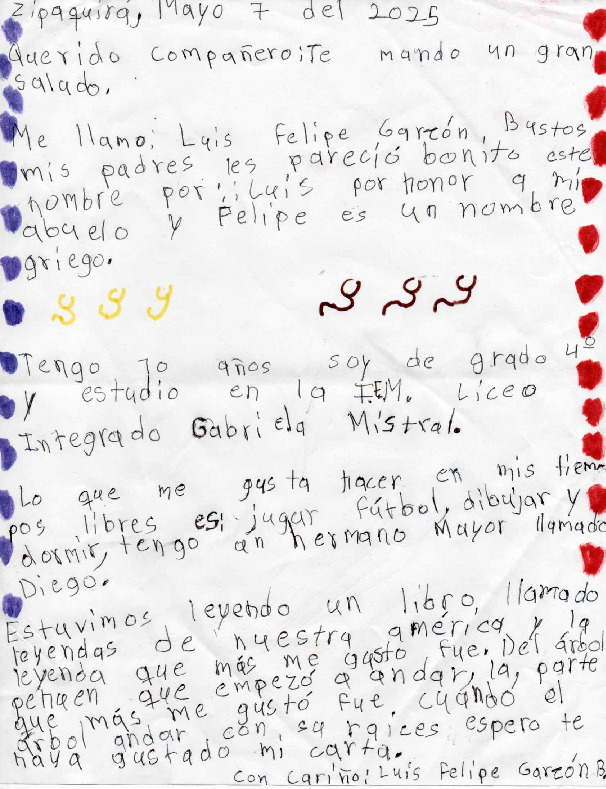 Zipaquirá, Mayo 7 del 2025
Querido compañero: Te mando un gran
saludo.
Me llamo: Luis Felipe Garzón, Bustos
mis padres les pareció bonito este
nombre por: Luis por honor a mi
abuelo y Felipe es un nombre
griego.
Tengo 10 años soy de grado 4º
y estudio en la I.E.M. Liceo
Integrado Gabriela Mistral.
Lo que me gusta hacer en mis tiem
pos libres es: jugar fútbol, dibujar y
dormir, tengo un hermano Mayor llamado
Diego.
Estuvimos leyendo un libro, llamado
leyendas de nuestra américa y la
leyenda que más me gusto fue. Del árbol
pehuen que empezó a andar, la, parte
que más me gustó fue cuándo el
árbol andar con su raices espero te
haya gustado mi carta.
con cariño: Luis Felipe Garzón B.